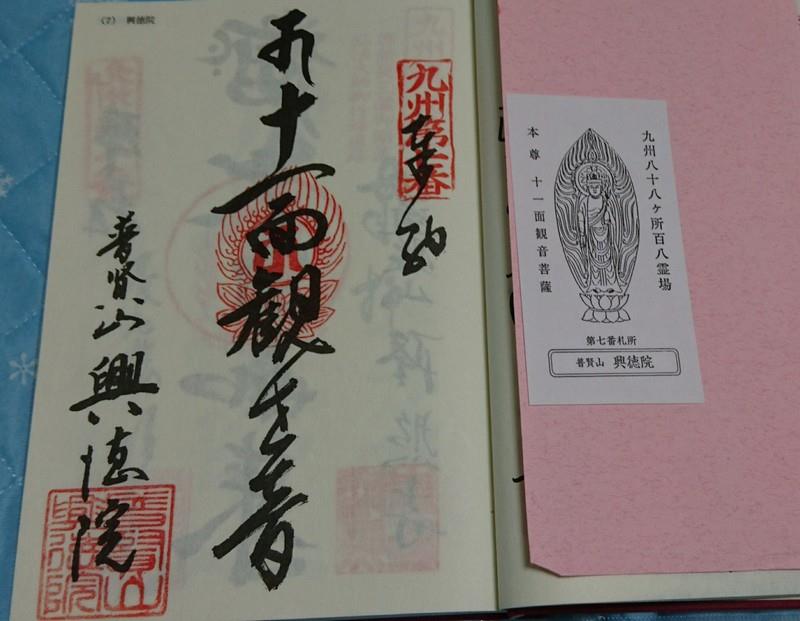 (7) 興徳院
九州第七番
奉納
十一面観世音
普賢山 興徳院
九州八十八ヶ所百八霊場
本尊 十一面観音菩薩
第七番札所
普賢山 興徳院